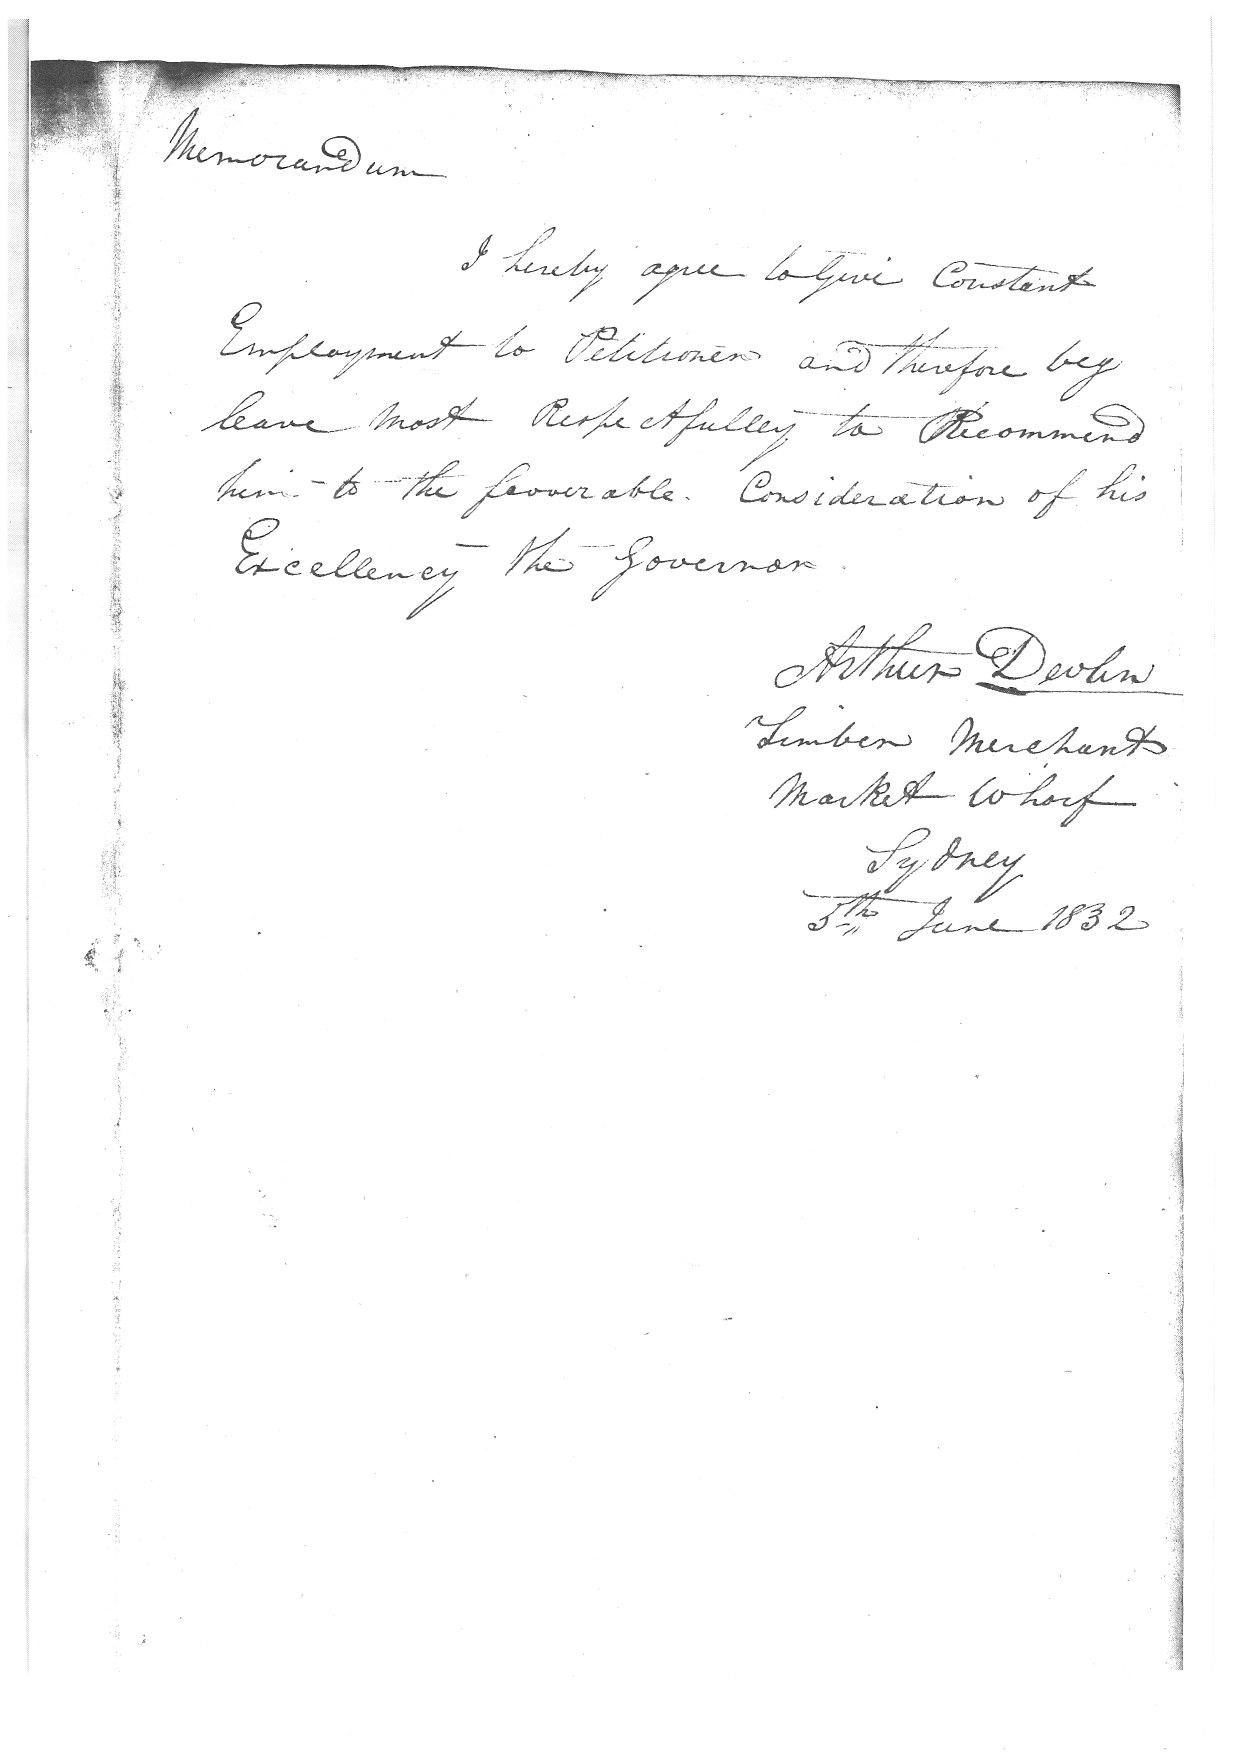 Memorandum
I hereby agree to Give Constant
Employment to Petitioner and therefore beg
leave most Respectfulley to Recommend
him to the favourable Consideration of his
Excellency the Governor
Arthur Devlin
Timber Merchant
Market Wharf
Sydney
5th June 1832